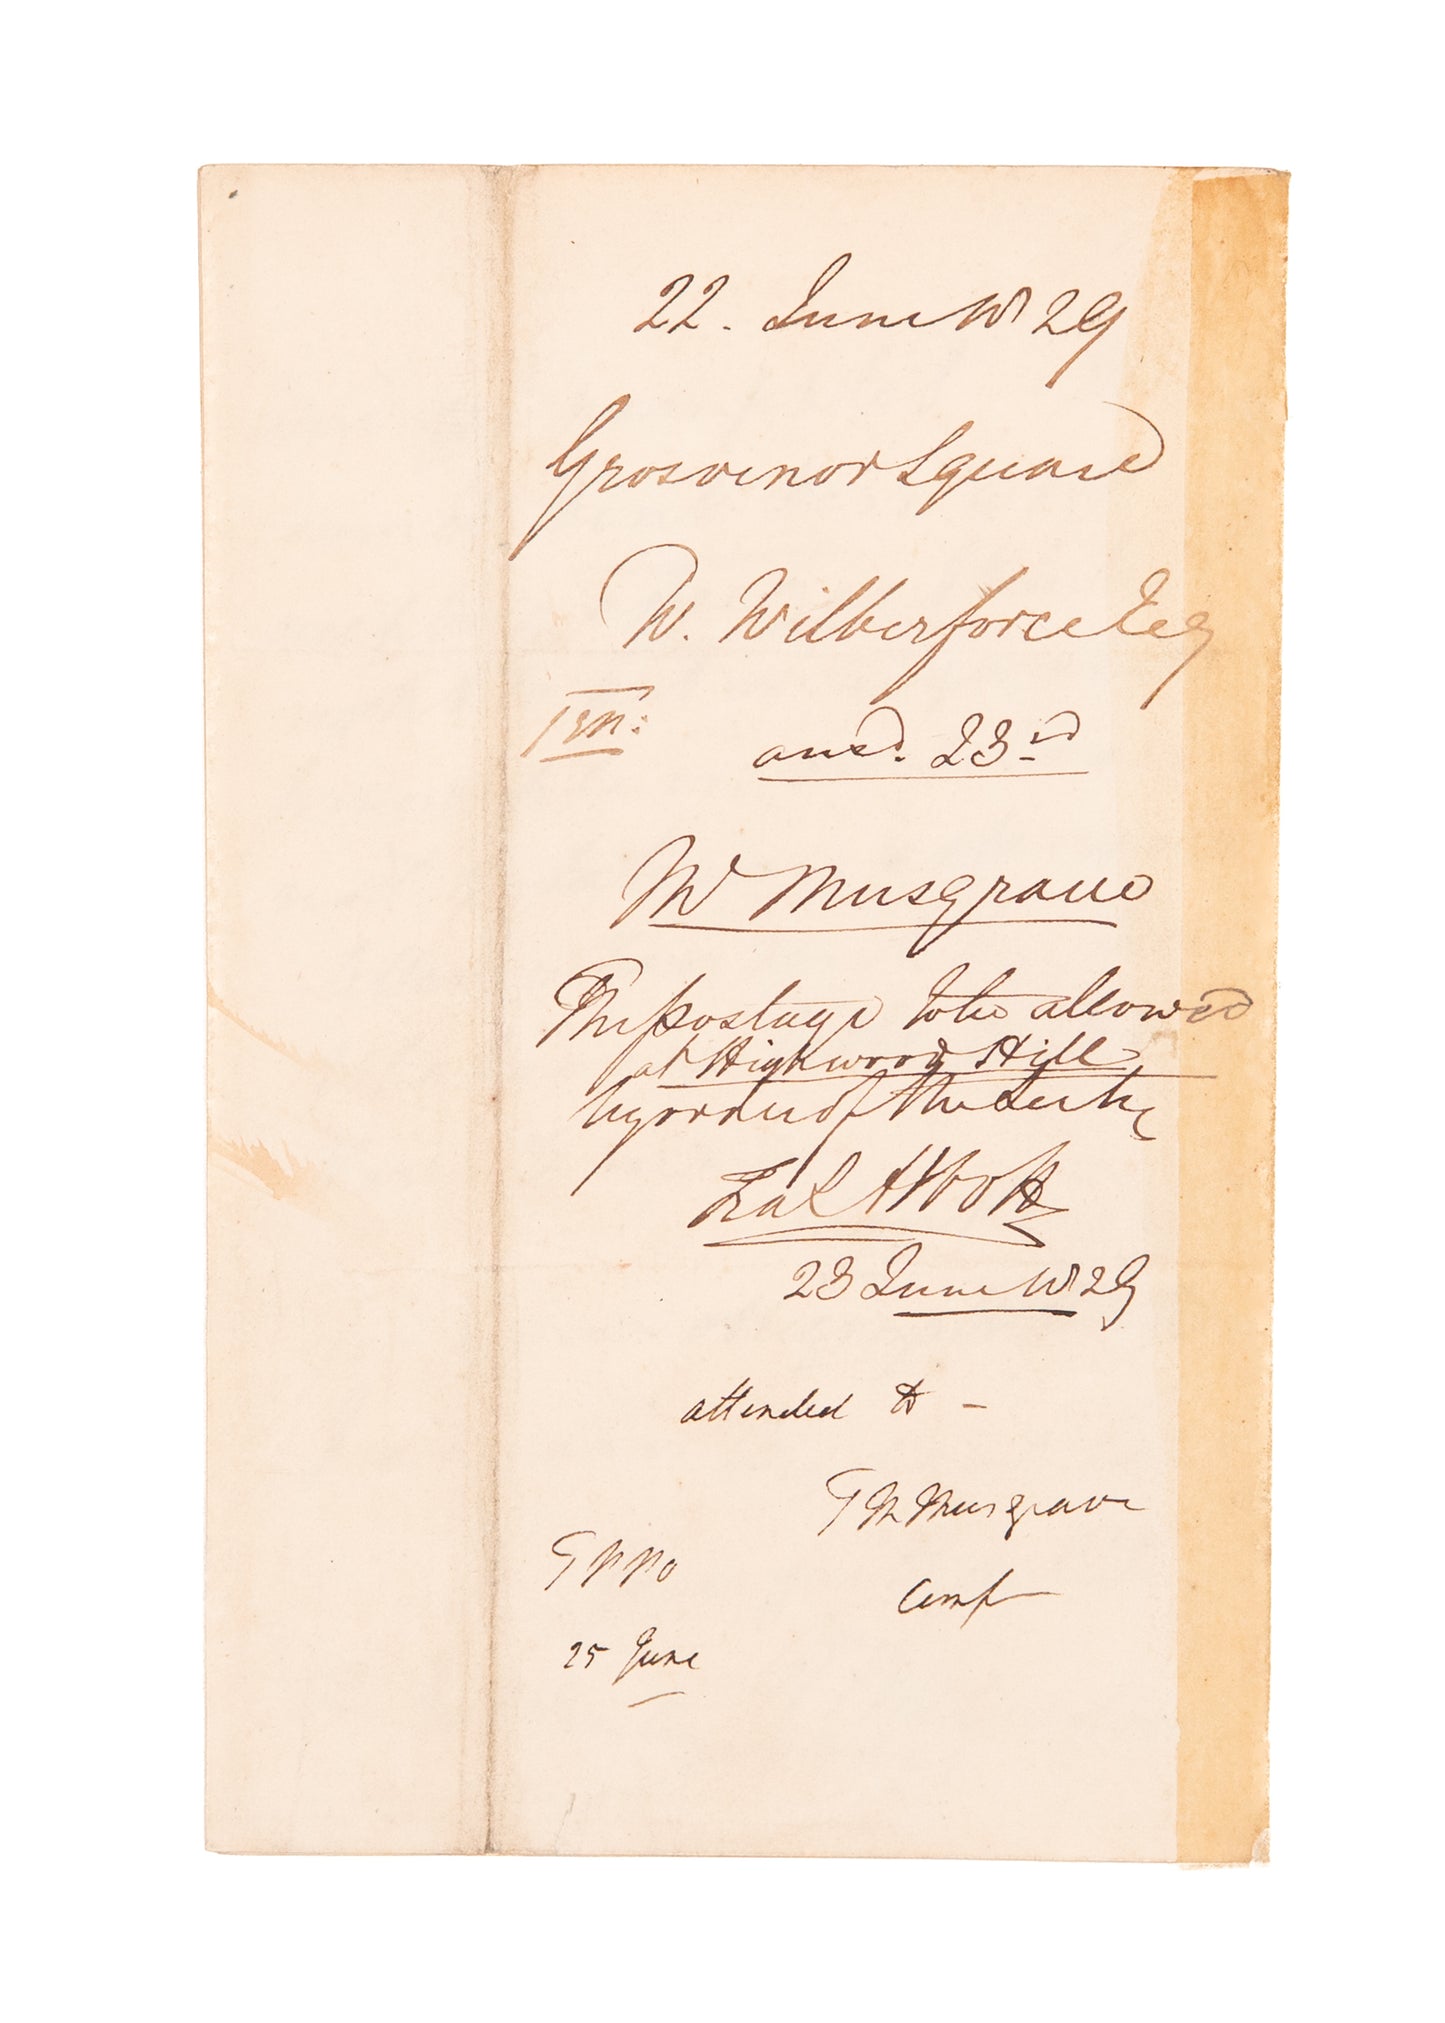 22. June 1829
Grosvenor Square
W. Wilberforce Esq
ansd. 23rd
Mr Musgrave
The postage to be allowed
at Highwood Hill
by order of the Secty
23 June 1829
attended to -
T M Musgrave
Comp
T P P O
25 June